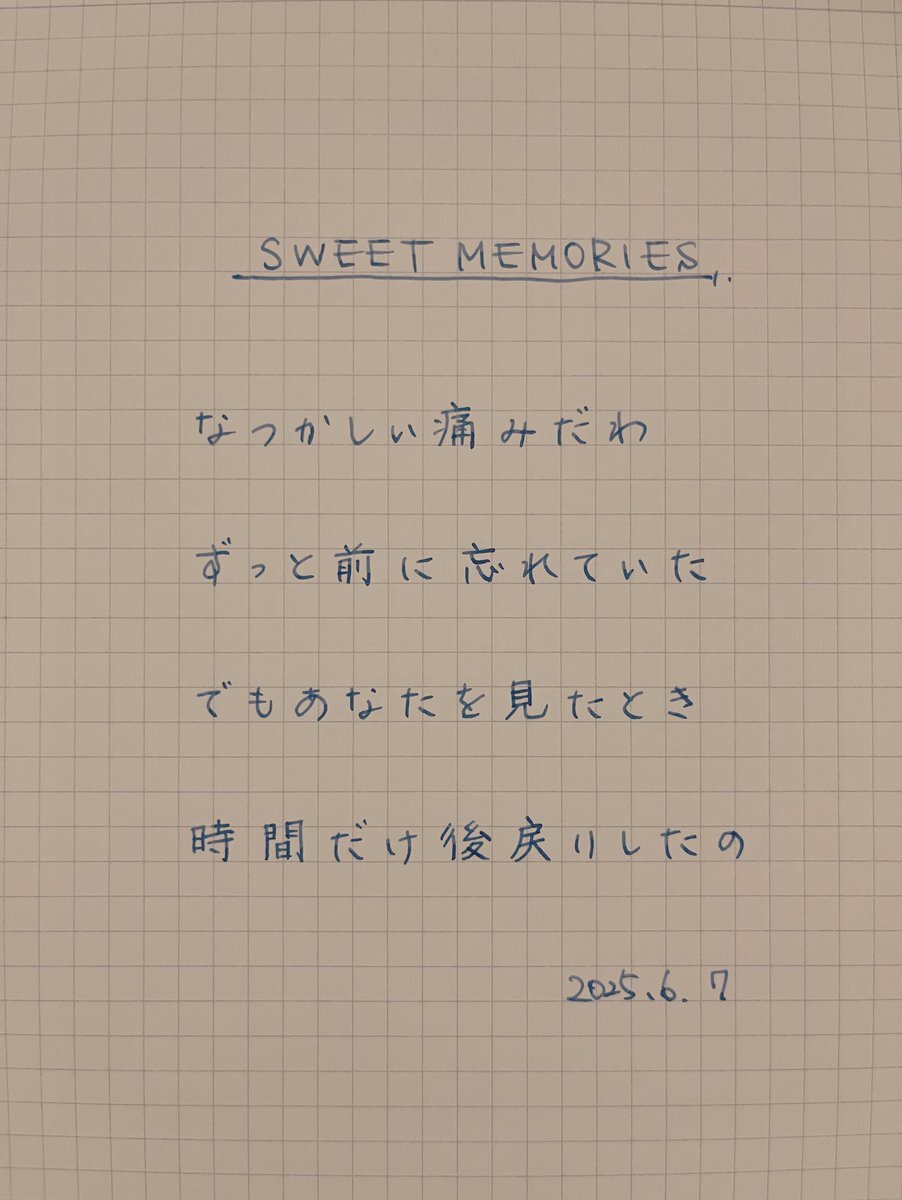 SWEET MEMORIES
なつかしい痛みだわ
ずっと前に忘れていた
でもあなたを見たとき
時間だけ後戻りしたの
2025.6.7